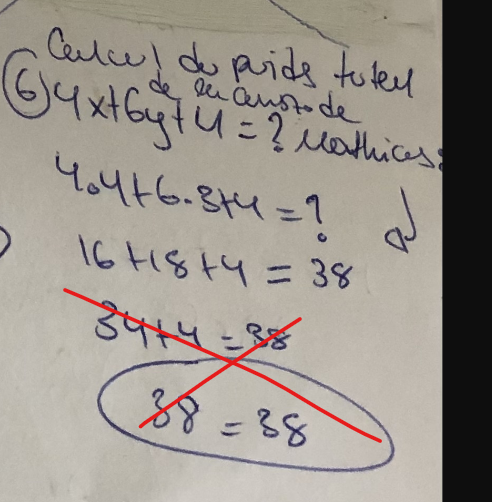 Calcul du poids total
de
6 4x+6y+4 = ?
4.4+6.3+4 = ?
16+18+4 = 38
34+4 = 38
38 = 38